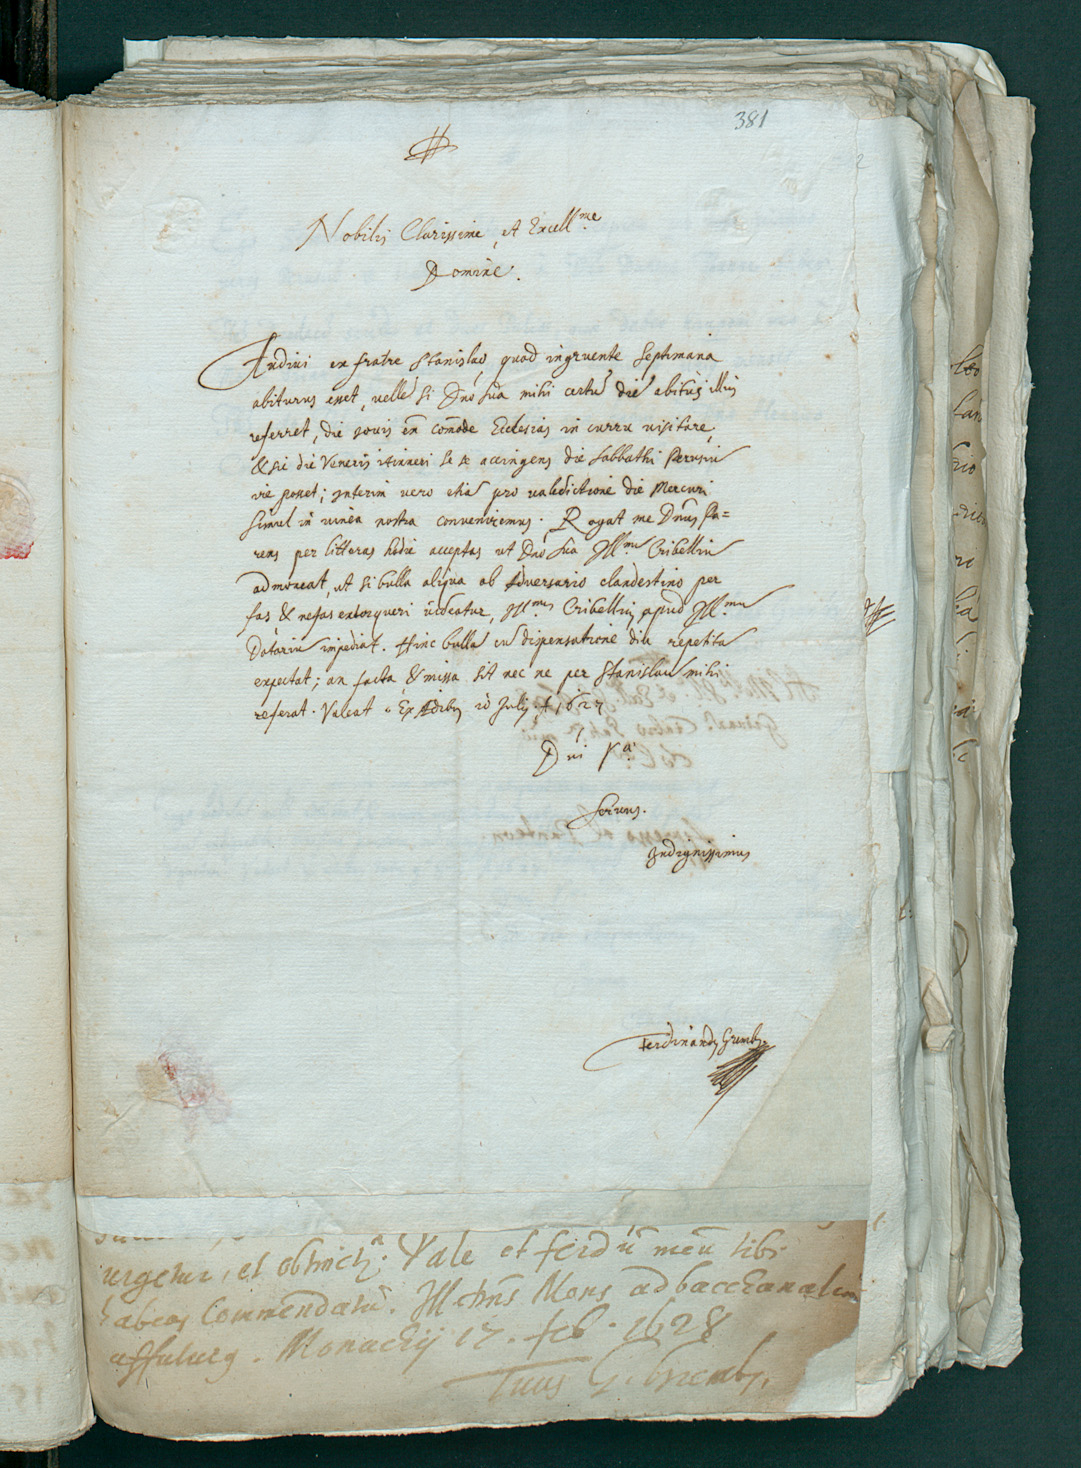 381
Nobilis Clarissime, et Excell.me
Domine.
Audiui ex fratre Stanislao, quod ingruente septimana
abiturus esset, uelle si Dnō sua mihi certū diē abitus illius
referret, die Jouis eñ comōde Ecclesias in curru uisitare,
& sic die Veneris itinneri se se accingens die Sabbathi Perusiū
vie ponet; Interim uero etiā pro ualedictione die Mercurii
simul in uinea nostra conueniremus. Rogat me Dnūs Pa=
rens per litteras hodie acceptas ut Dnō sua Ill.mu Cribelliū
admoneat, ut si bulla aliqua ab Aduersario clandestino per
fas & nefas extorqueri uideatur, Ill.mus Cribellius apud Ill.mu
Datariū impediat. Hinc bullā cū dispensatione diu repetitā
expectat; an facta & missa sit nec ne per Stanislaū mihi
referat. Valeat. Ex Ædibus 20 Julij 1627
Dni Va
Seruus.
Indignissimus
Ferdinandus Gremb.
urgetur, et Vale et ferdū meū tibi
habeas Commendatū. Ill Mons ad bacchanalia
. Monachij 17. feb. 1628
Tuus G. Gremb.